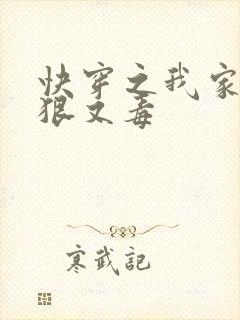 快穿之我家
狠又毒
寒武記